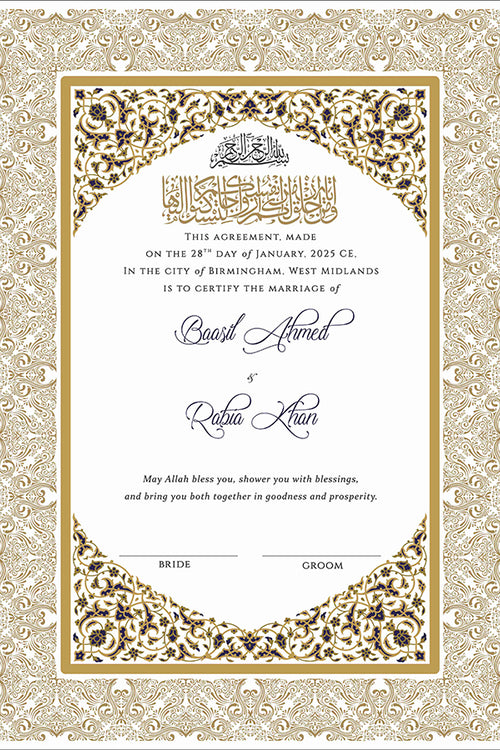 بسم الله الرحمن الرحيم
THIS AGREEMENT, MADE
ON THE 28TH DAY of JANUARY, 2025 CE,
IN THE CITY of BIRMINGHAM, WEST MIDLANDS
IS TO CERTIFY THE MARRIAGE of
Baasil Ahmed
&
Rabia Khan
May Allah bless you, shower you with blessings,
and bring you both together in goodness and prosperity.
BRIDE
GROOM